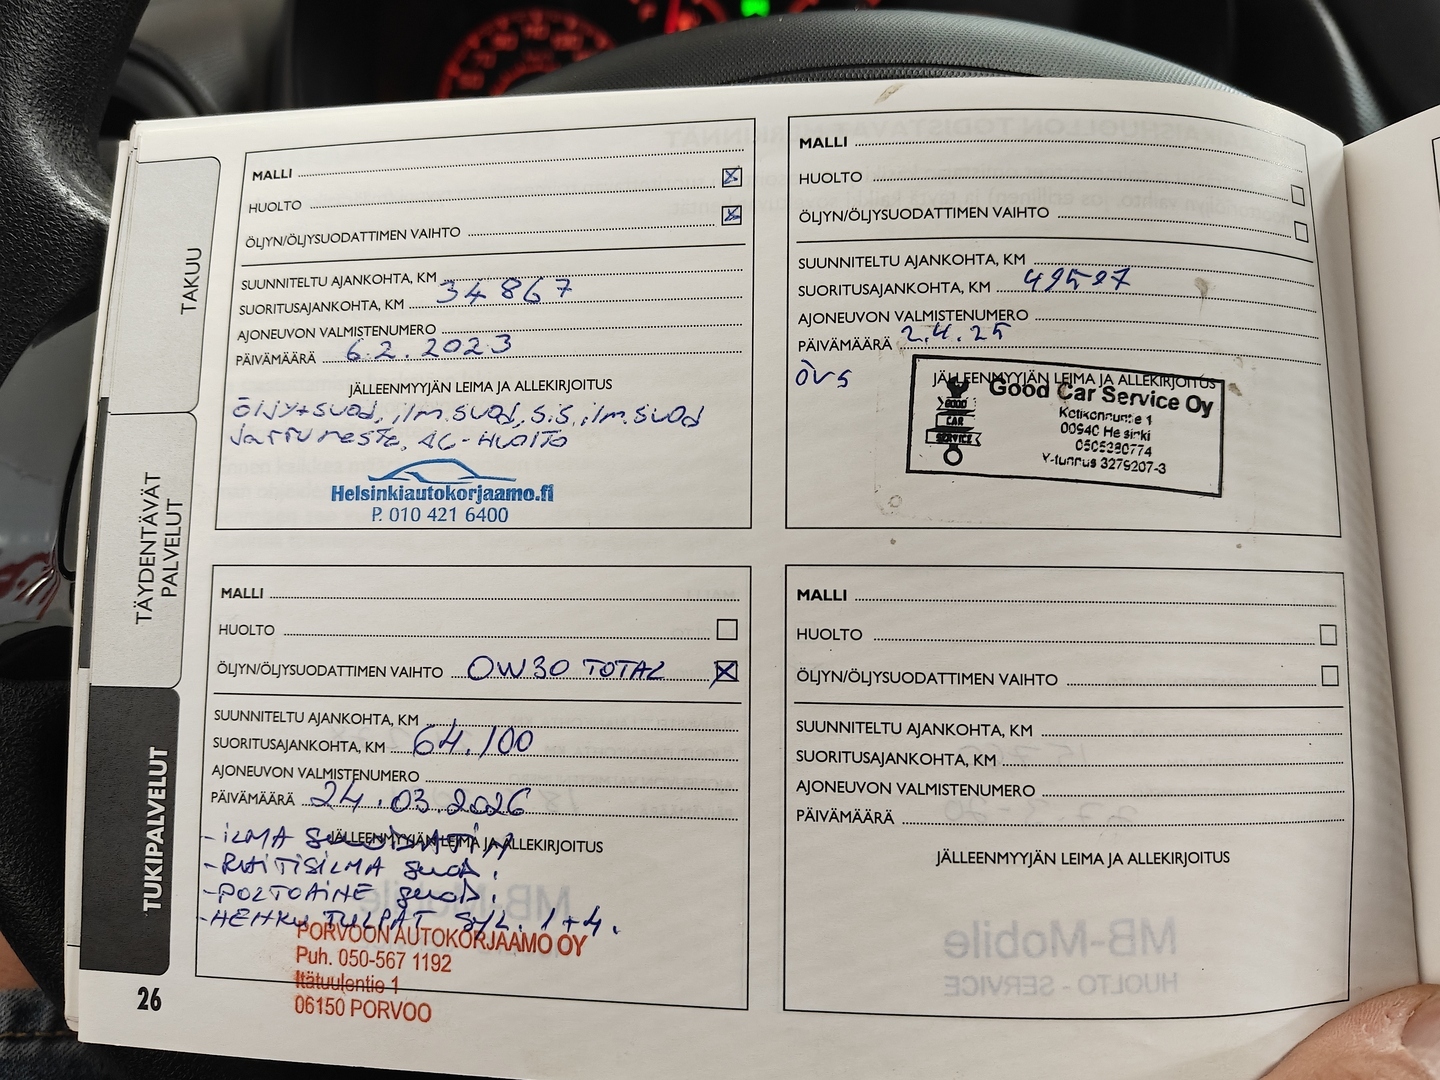 TAKUU
TÄYDENTÄVÄT
PALVELUT
TUKIPALVELUT
MALLI
HUOLTO
ÖLJYN/ÖLJYSUODATTIMEN VAIHTO
SUUNNITELTU AJANKOHTA, KM
SUORITUSAJANKOHTA, KM 34867
AJONEUVON VALMISTENUMERO
PÄIVÄMÄÄRÄ 6.2.2023
JÄLLEENMYYJÄN LEIMA JA ALLEKIRJOITUS
ÖLJY+SUOD, ilm.suod, s.s.ilm.suod
Jarruneste, AC-HUOLTO
Helsinkiautokorjaamo.fi
P. 010 421 6400
MALLI
HUOLTO
ÖLJYN/ÖLJYSUODATTIMEN VAIHTO
SUUNNITELTU AJANKOHTA, KM
SUORITUSAJANKOHTA, KM 49597
AJONEUVON VALMISTENUMERO
PÄIVÄMÄÄRÄ 2.4.25
JÄLLEENMYYJÄN LEIMA JA ALLEKIRJOITUS
övs
GOOD
CAR
SERVICE
Good Car Service Oy
1
00940 Helsinki
Y-tunnus 3279207-3
MALLI
HUOLTO
ÖLJYN/ÖLJYSUODATTIMEN VAIHTO 0W30 TOTAL
SUUNNITELTU AJANKOHTA, KM
SUORITUSAJANKOHTA, KM 64.100
AJONEUVON VALMISTENUMERO
PÄIVÄMÄÄRÄ 24.03.2026
JÄLLEENMYYJÄN LEIMA JA ALLEKIRJOITUS
- ILMA SUODATIN
- RAITISILMA suod.
- POLTOAINE suod.
- HEHKU TULPAT SYL. 1+4.
PORVOON AUTOKORJAAMO OY
Puh. 050-567 1192
Itätuulentie 1
06150 PORVOO
MALLI
HUOLTO
ÖLJYN/ÖLJYSUODATTIMEN VAIHTO
SUUNNITELTU AJANKOHTA, KM
SUORITUSAJANKOHTA, KM
AJONEUVON VALMISTENUMERO
PÄIVÄMÄÄRÄ
JÄLLEENMYYJÄN LEIMA JA ALLEKIRJOITUS
MB-Mobile
HUOLTO - SERVICE
26